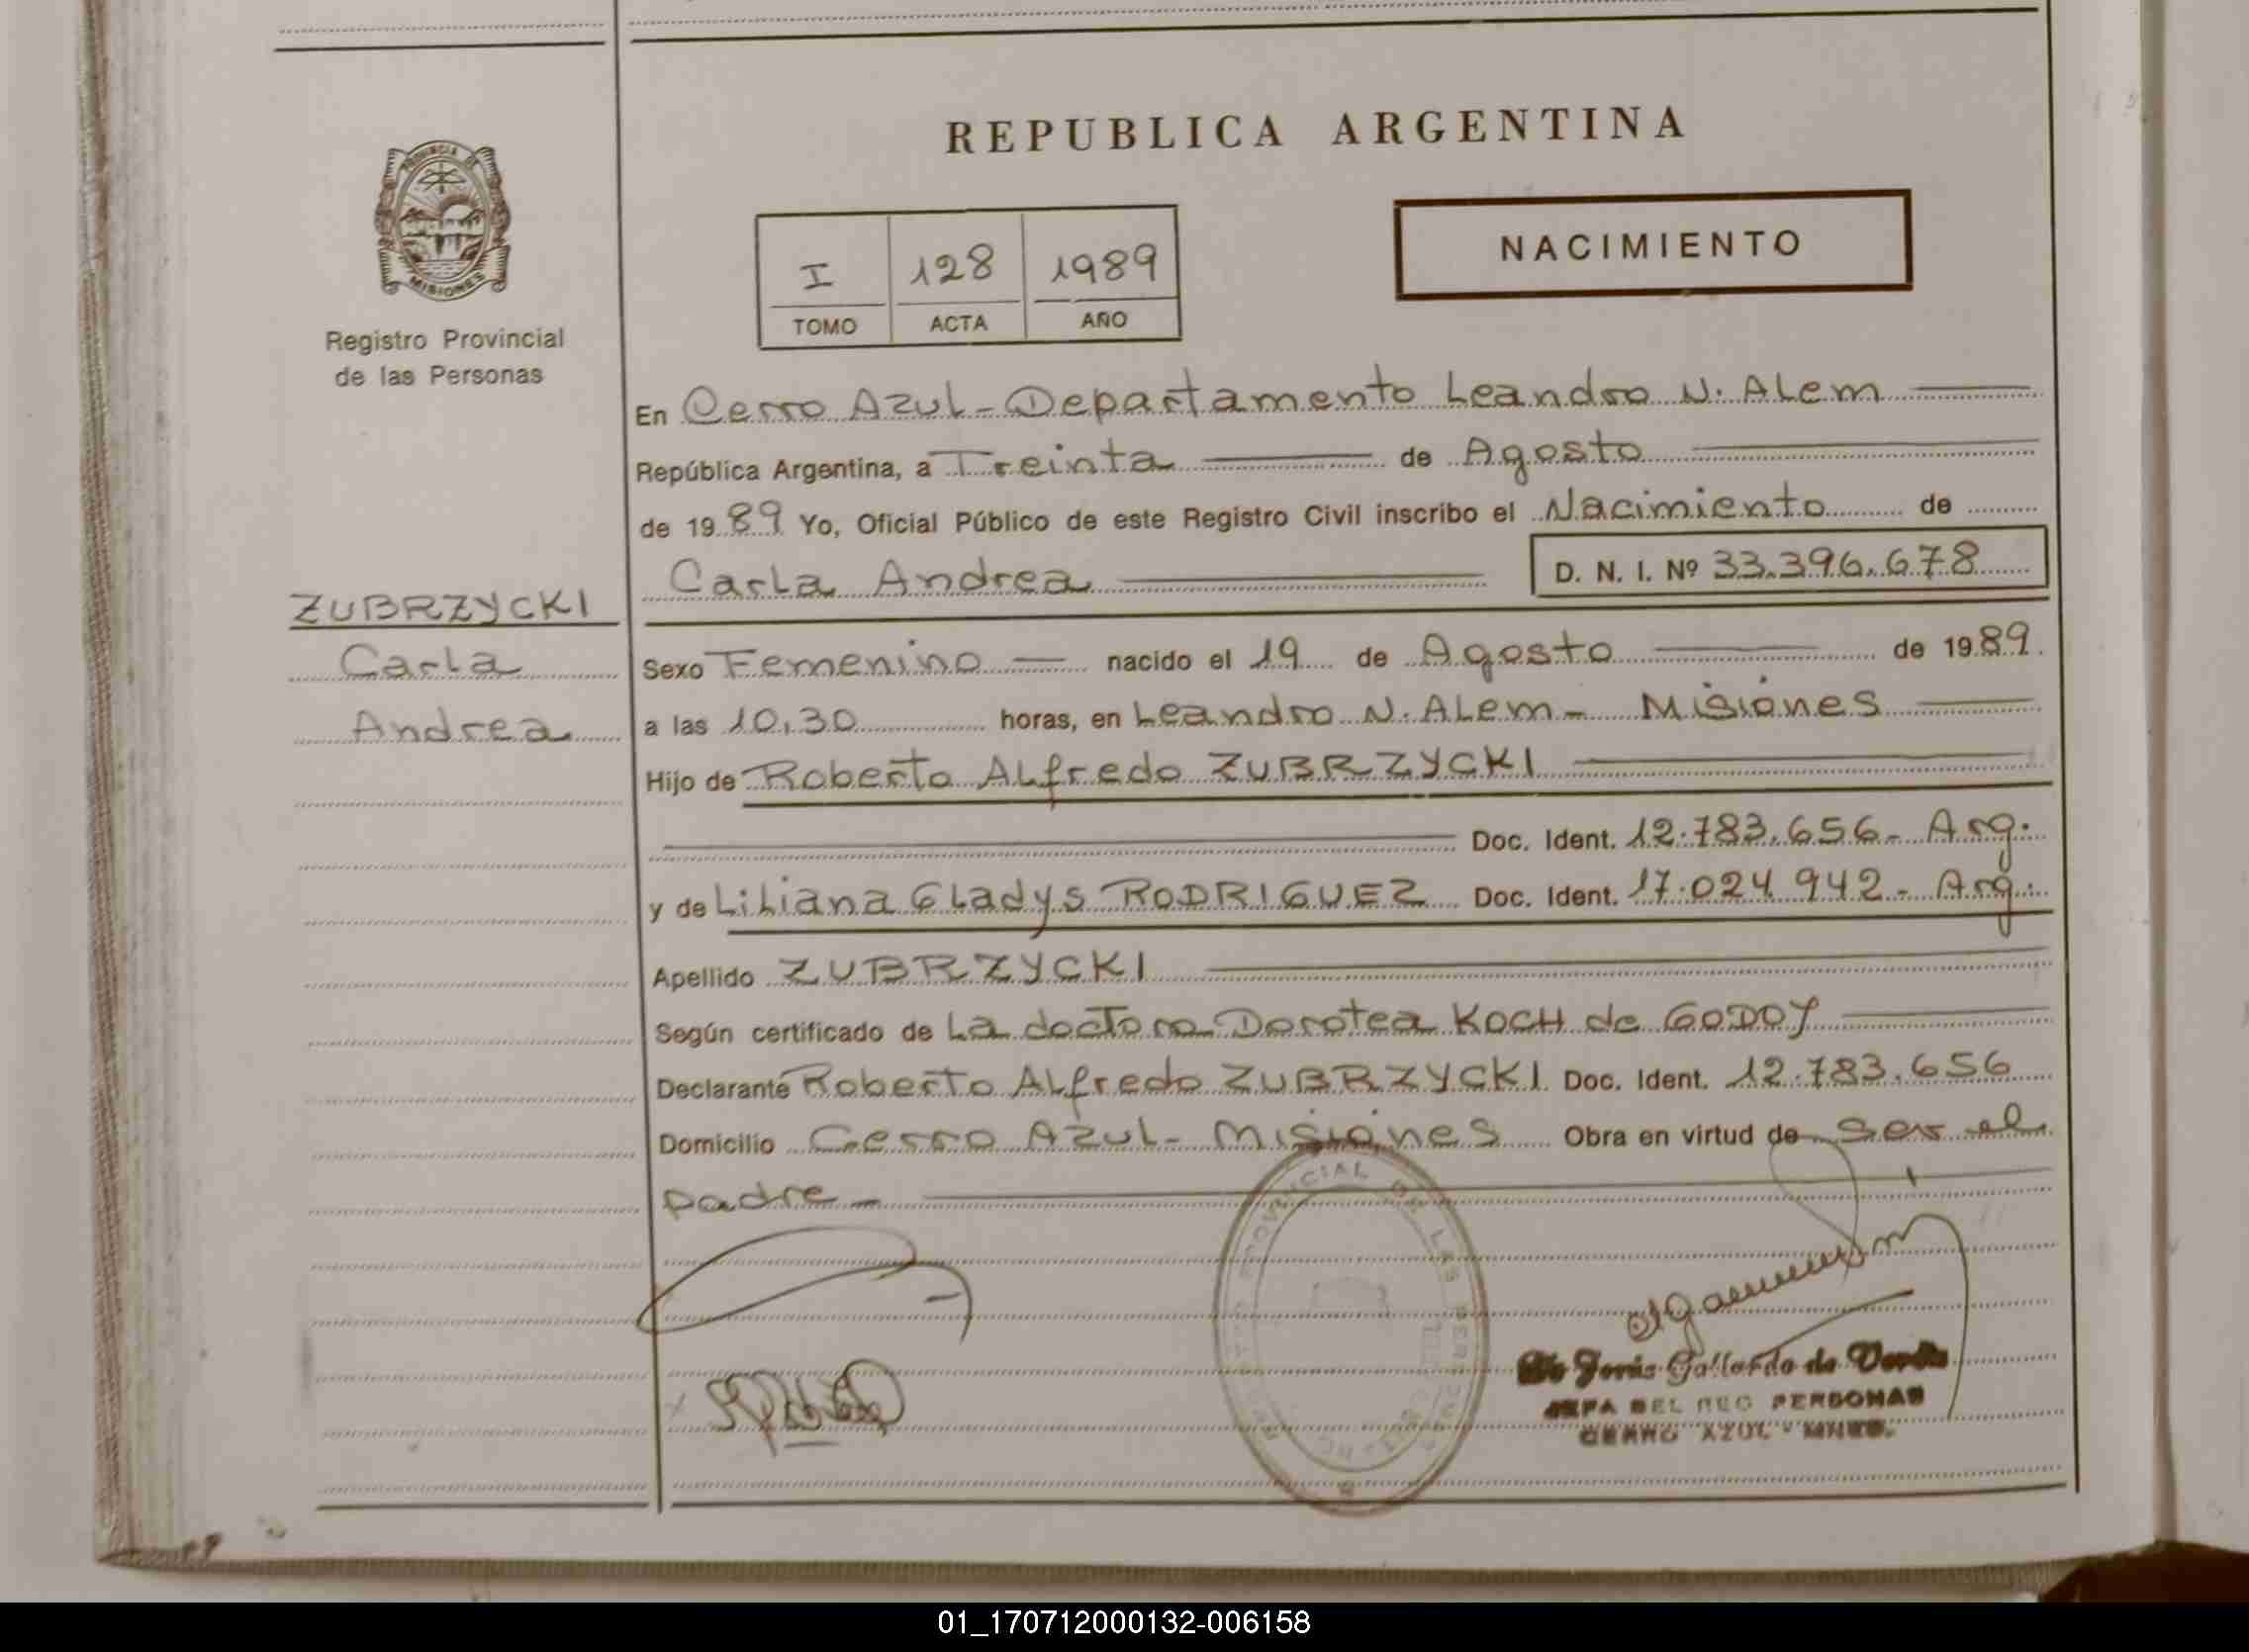 REPUBLICA ARGENTINA
PROVINCIA DE
MISIONES
Registro Provincial
de las Personas
I 128 1989
TOMO ACTA AÑO
NACIMIENTO
En Cerro Azul - Departamento Leandro N. Alem
República Argentina, a Treinta de Agosto
de 1989 Yo, Oficial Público de este Registro Civil inscribo el Nacimiento de
Carla Andrea D. N. I. Nº 33.396.678
ZUBRZYCKI
Carla
Andrea
Sexo Femenino nacido el 19 de Agosto de 1989.
a las 10,30 horas, en Leandro N. Alem - Misiones
Hijo de Roberto Alfredo ZUBRZYCKI
Doc. Ident. 12.783.656 - Arg.
y de Liliana Gladys RODRIGUEZ Doc. Ident. 17.024.942 - Arg.
Apellido ZUBRZYCKI
Según certificado de La doctora Dorotea KOCH de GODOY
Declarante Roberto Alfredo ZUBRZYCKI Doc. Ident. 12.783.656
Domicilio Cerro Azul - Misiones Obra en virtud de ser el
padre -
PROVINCIAL DE LAS PERSONAS
Jesús Gallardo de
JEFA DEL REG PERSONAS
CERRO AZUL - MNES.
01_170712000132-006158